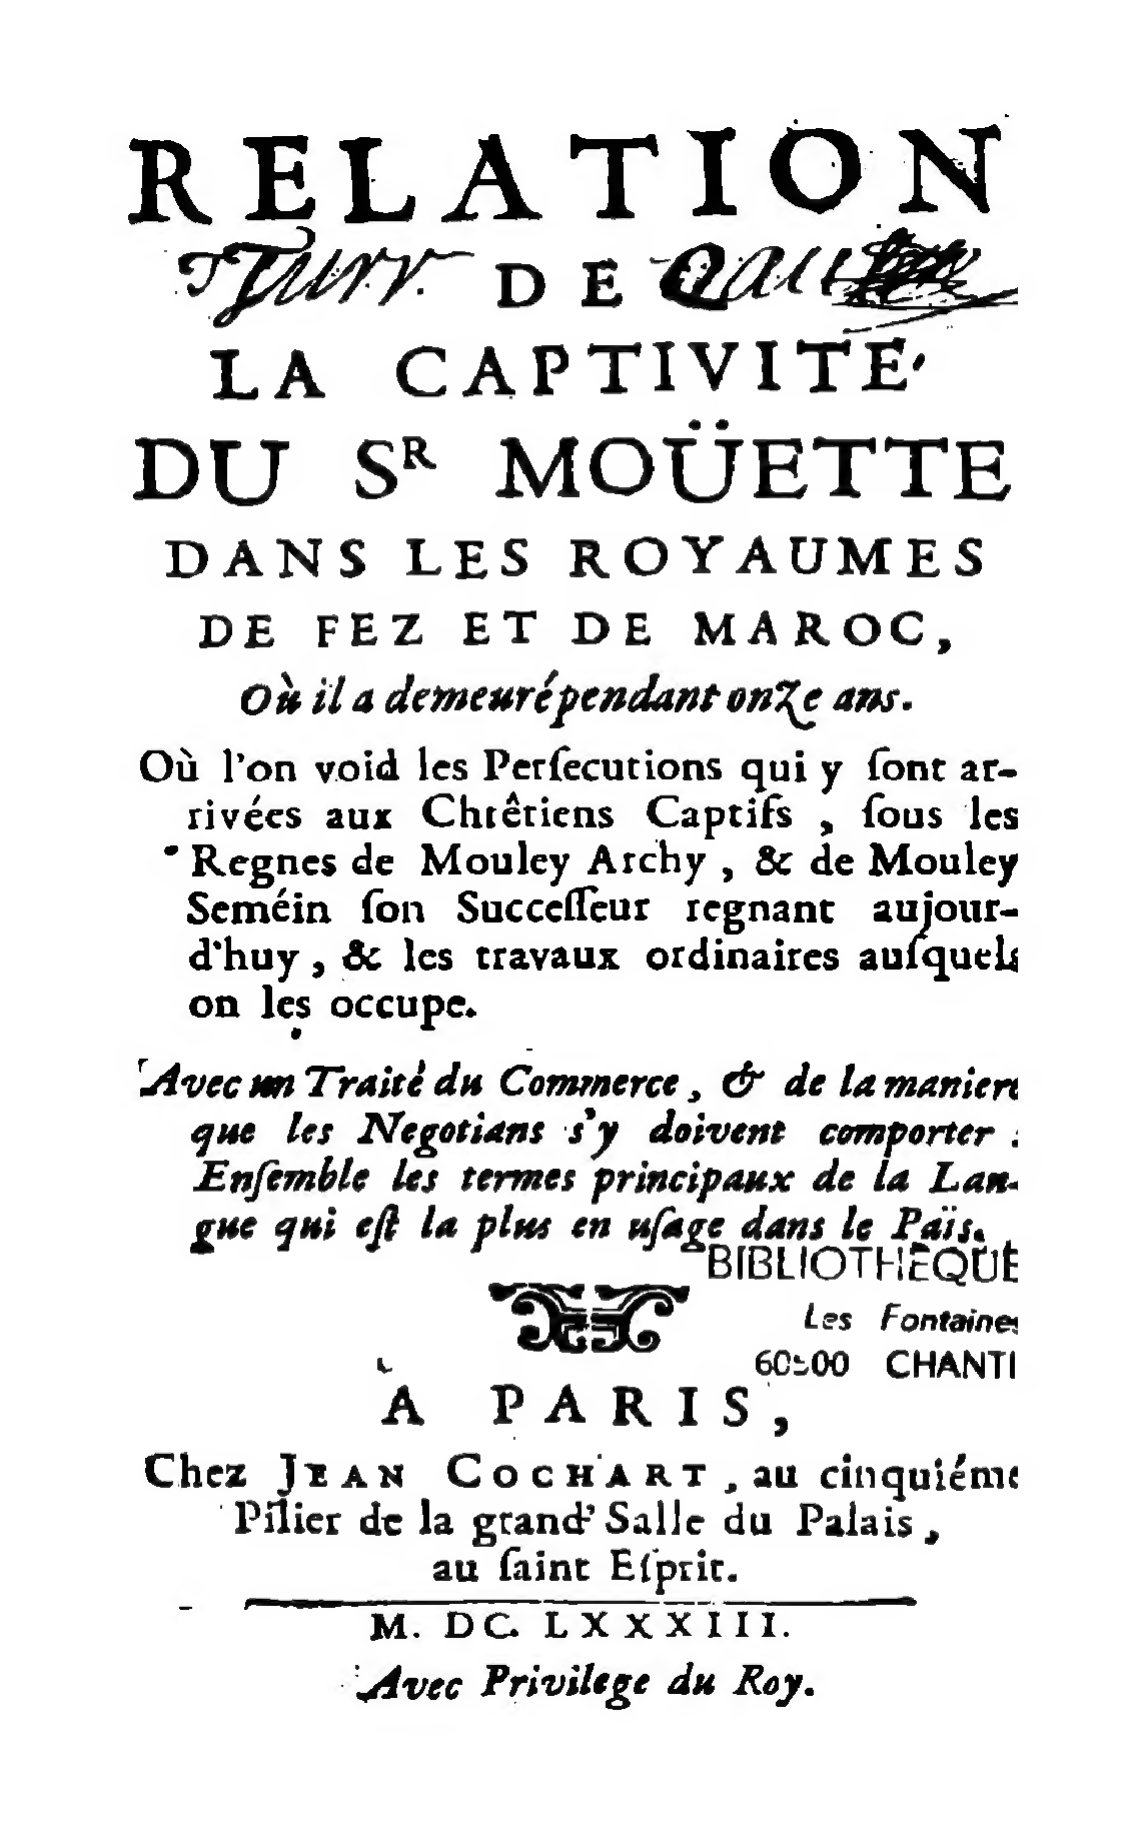 RELATION
DE
LA CAPTIVITE'
DU SR MOÜETTE
DANS LES ROYAUMES
DE FEZ ET DE MAROC,
Où il a demeuré pendant onze ans.
Où l'on void les Perſecutions qui y ſont ar-
rivées aux Chrêtiens Captifs, ſous les
Regnes de Mouley Archy, & de Mouley
Seméin ſon Succeſſeur regnant aujour-
d'huy, & les travaux ordinaires auſquels
on les occupe.
Avec un Traité du Commerce, & de la maniere
que les Negotians s'y doivent comporter :
Enſemble les termes principaux de la Lan-
gue qui eſt la plus en uſage dans le Païs.
BIBLIOTHEQUE
Les Fontaines
CHANTI
A PARIS,
Chez JEAN COCHART, au cinquiéme
Pilier de la grand' Salle du Palais,
au ſaint Eſprit.
M. DC. LXXXIII.
Avec Privilege du Roy.